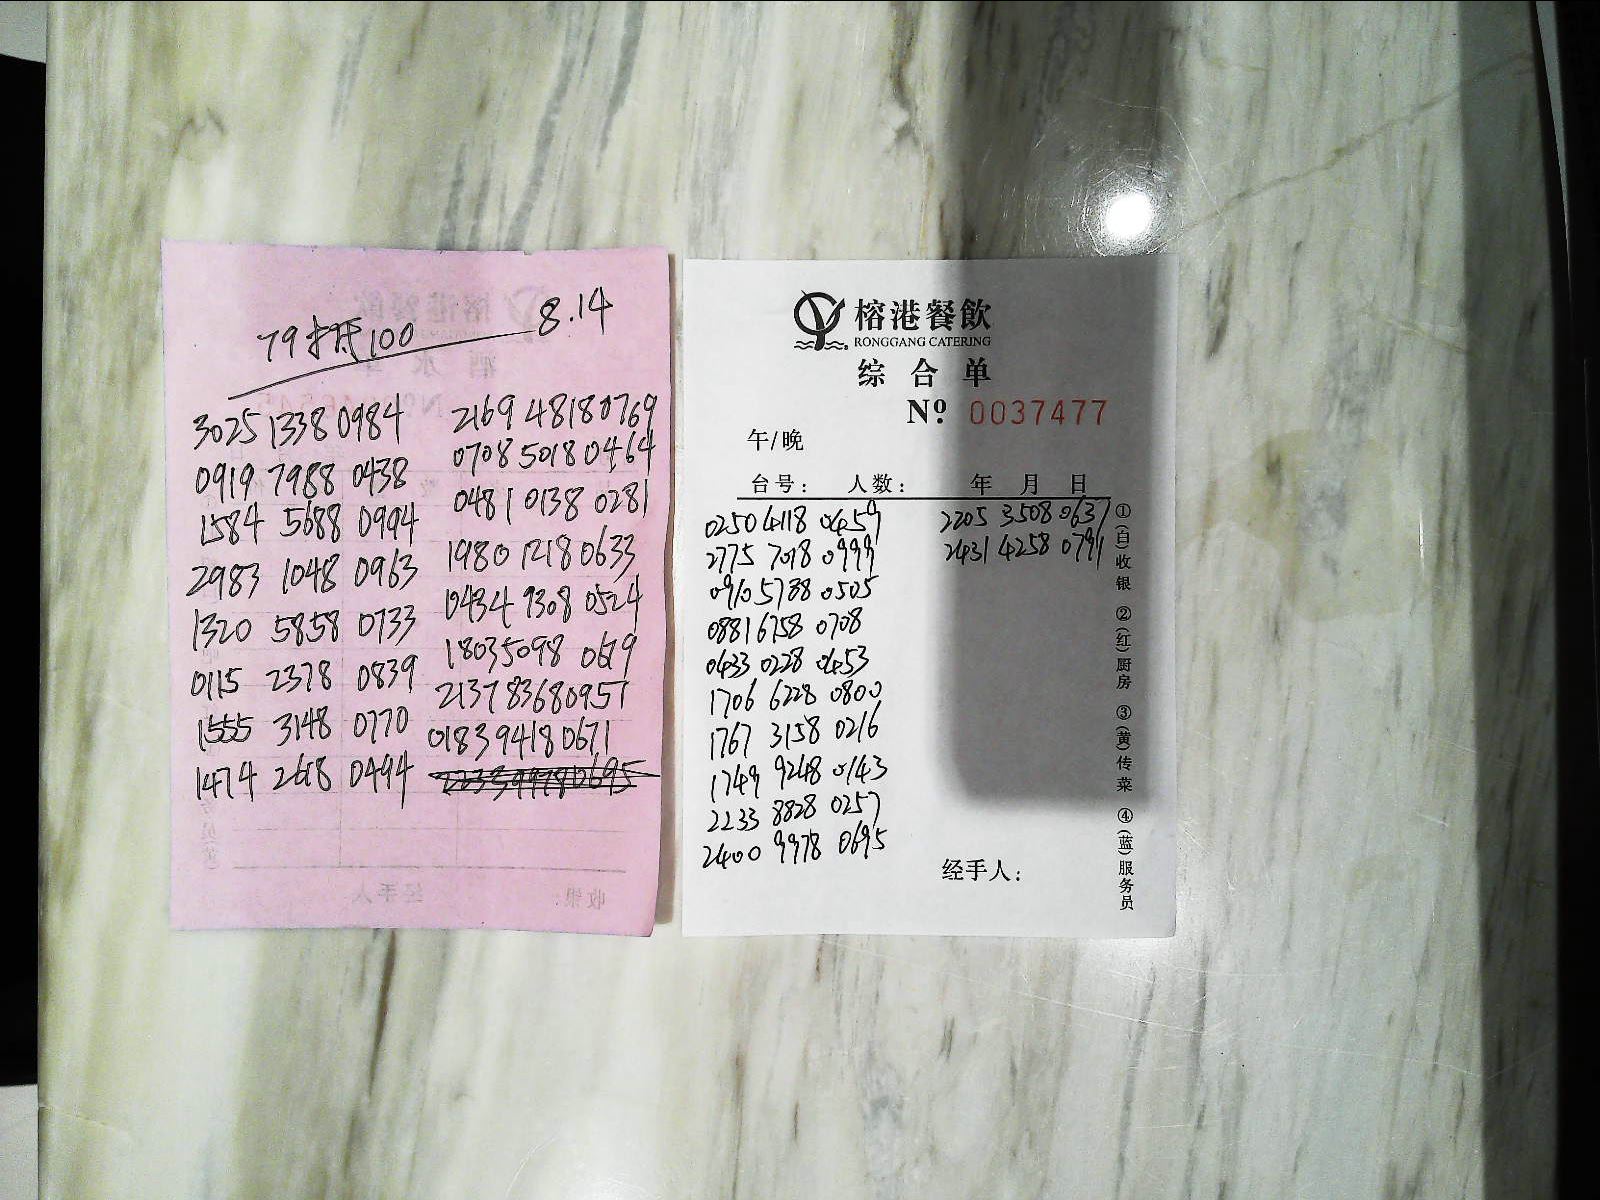 79抵100 8.14
3025 1338 0984
0919 7988 0438
1584 5688 0994
2983 1048 0963
1320 5858 0733
0115 2378 0839
1555 3148 0770
1474 2618 0494
2169 4818 0769
0708 5018 0464
0481 0138 0281
1980 1218 0633
0434 9308 0524
1803 5098 0679
2137 8368 0957
0183 9418 0671
2233 9978 0695
收银:
经手人
榕港餐飲
RONGGANG CATERING
综合单
Nº 0037477
午/晚
台号: 人数: 年 月 日
0250 4118 0459
2775 7018 0999
0910 5788 0505
0881 6758 0708
0433 0228 0453
1706 6228 0800
1767 3158 0216
1749 9248 0143
2233 8828 0257
2400 9978 0695
2205 3508 0637
2431 4258 0791
经手人:
①(白)收银 ②(红)厨房 ③(黄)传菜 ④(蓝)服务员